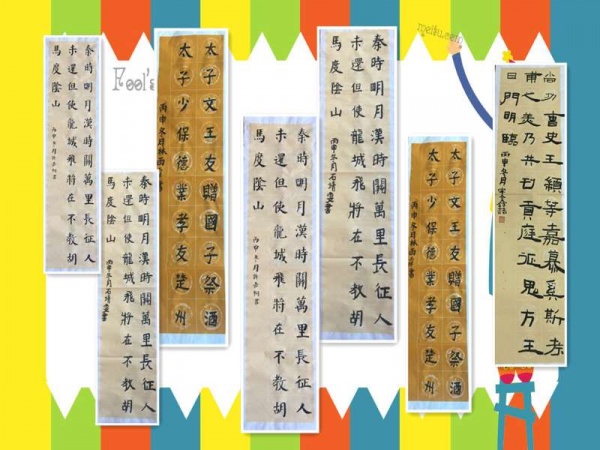 Fool's
meiku.com
秦時明月漢時關萬里長征人
未還但使龍城飛將在不教胡
馬度陰山
丙申冬月
秦時明月漢時關萬里長征人
未還但使龍城飛將在不教胡
馬度陰山
丙申冬月石靖雯書
太子文王友贈國子祭酒
太子少保德業孝友楚州
丙申冬月林雨書
秦時明月漢時關萬里長征人
未還但使龍城飛將在不教胡
馬度陰山
丙申冬月
秦時明月漢時關萬里長征人
未還但使龍城飛將在不教胡
馬度陰山
丙申冬月石靖雯書
太子文王友贈國子祭酒
太子少保德業孝友楚州
丙申冬月林雨書
尚功曹史王顓等嘉慕奚斯考
甫之美乃共曰貢庭征鬼方王
曰門明臨
丙申冬月宋